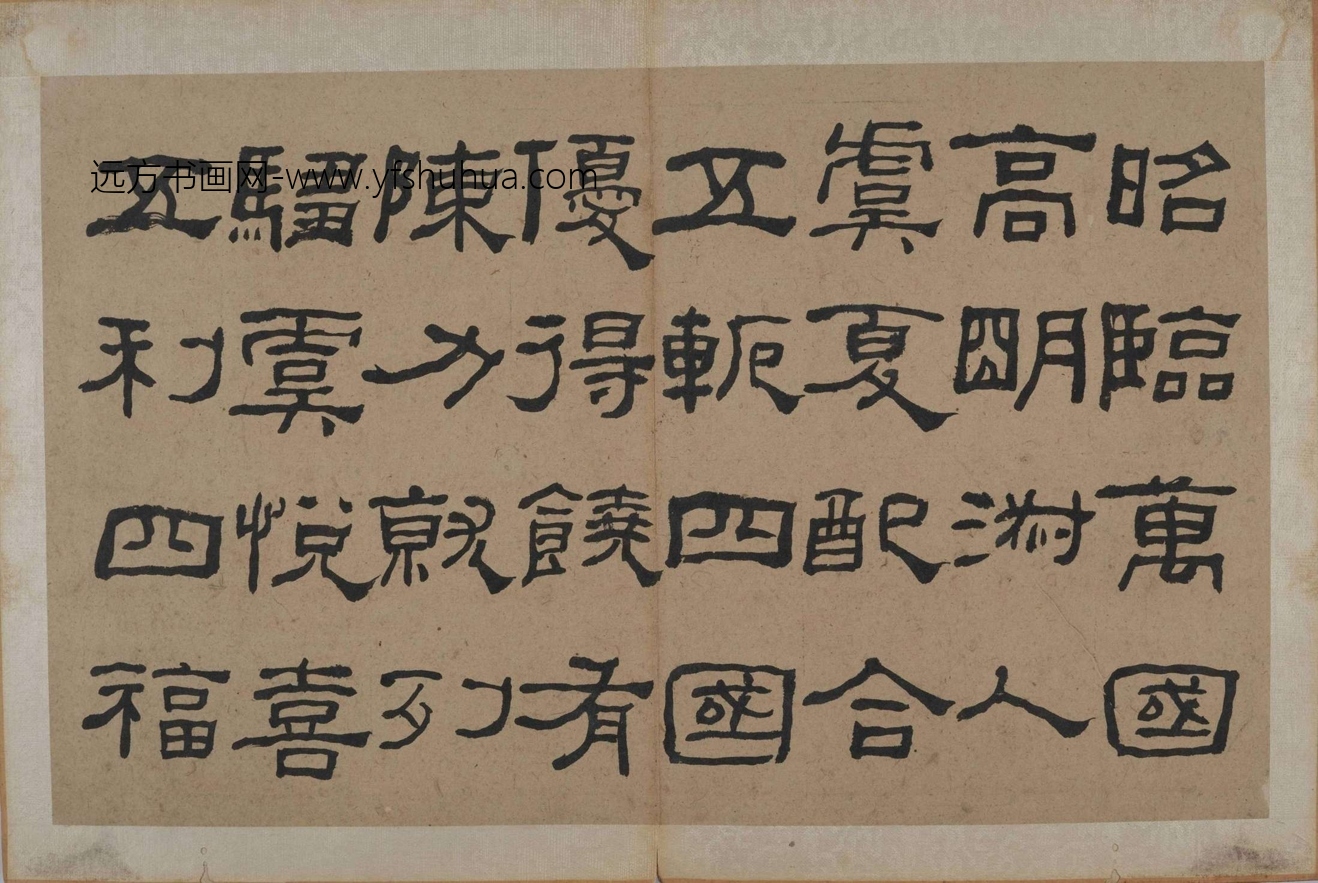 昭臨萬國
高朙人
虞夏配合
五軛四國
優得饒有
陳力就列
騶虞悅喜
五利四福
远方书画网-www.yfshuhua.com